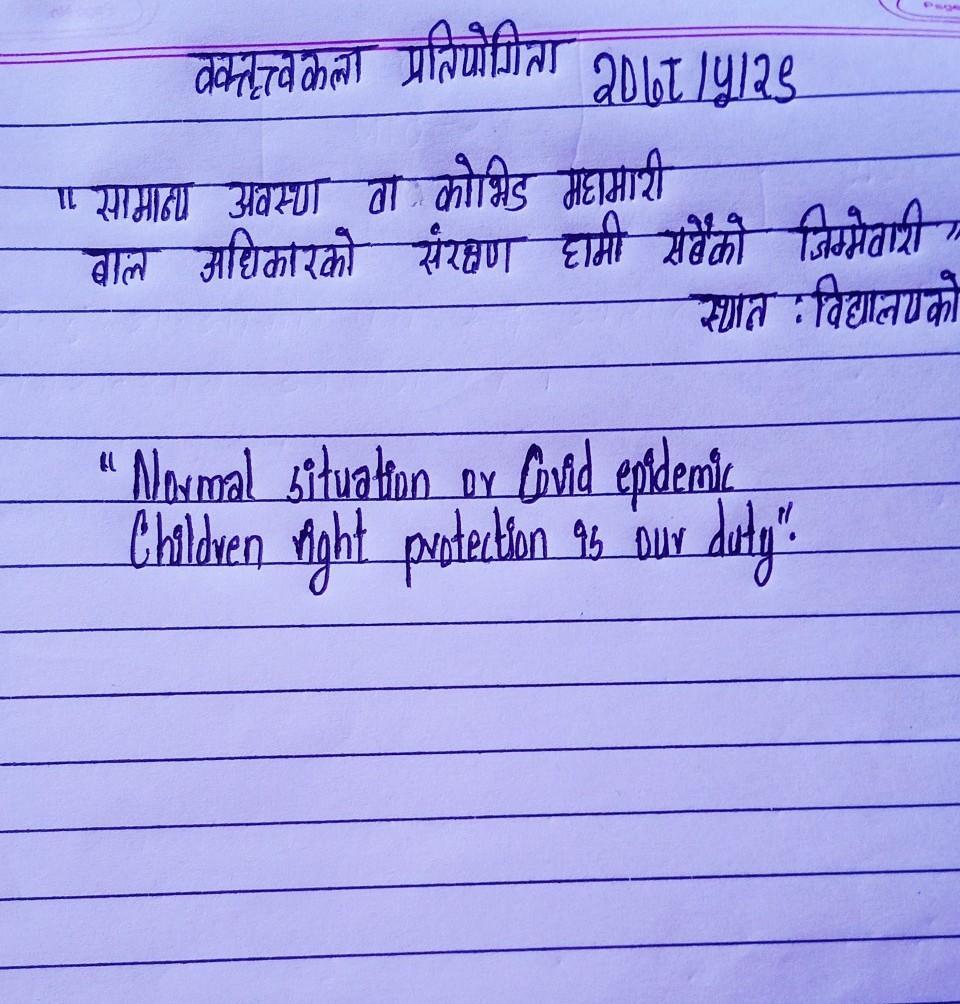 वक्तृत्त्वकला प्रतियोगिता २०७८/५/२९
"सामान्य अवस्था वा कोभिड महामारी
बाल अधिकारको संरक्षण हामी सबैको जिम्मेवारी"
स्थान : विद्यालयको
"Normal situation or Covid epidemic
Children right protection is our duty".